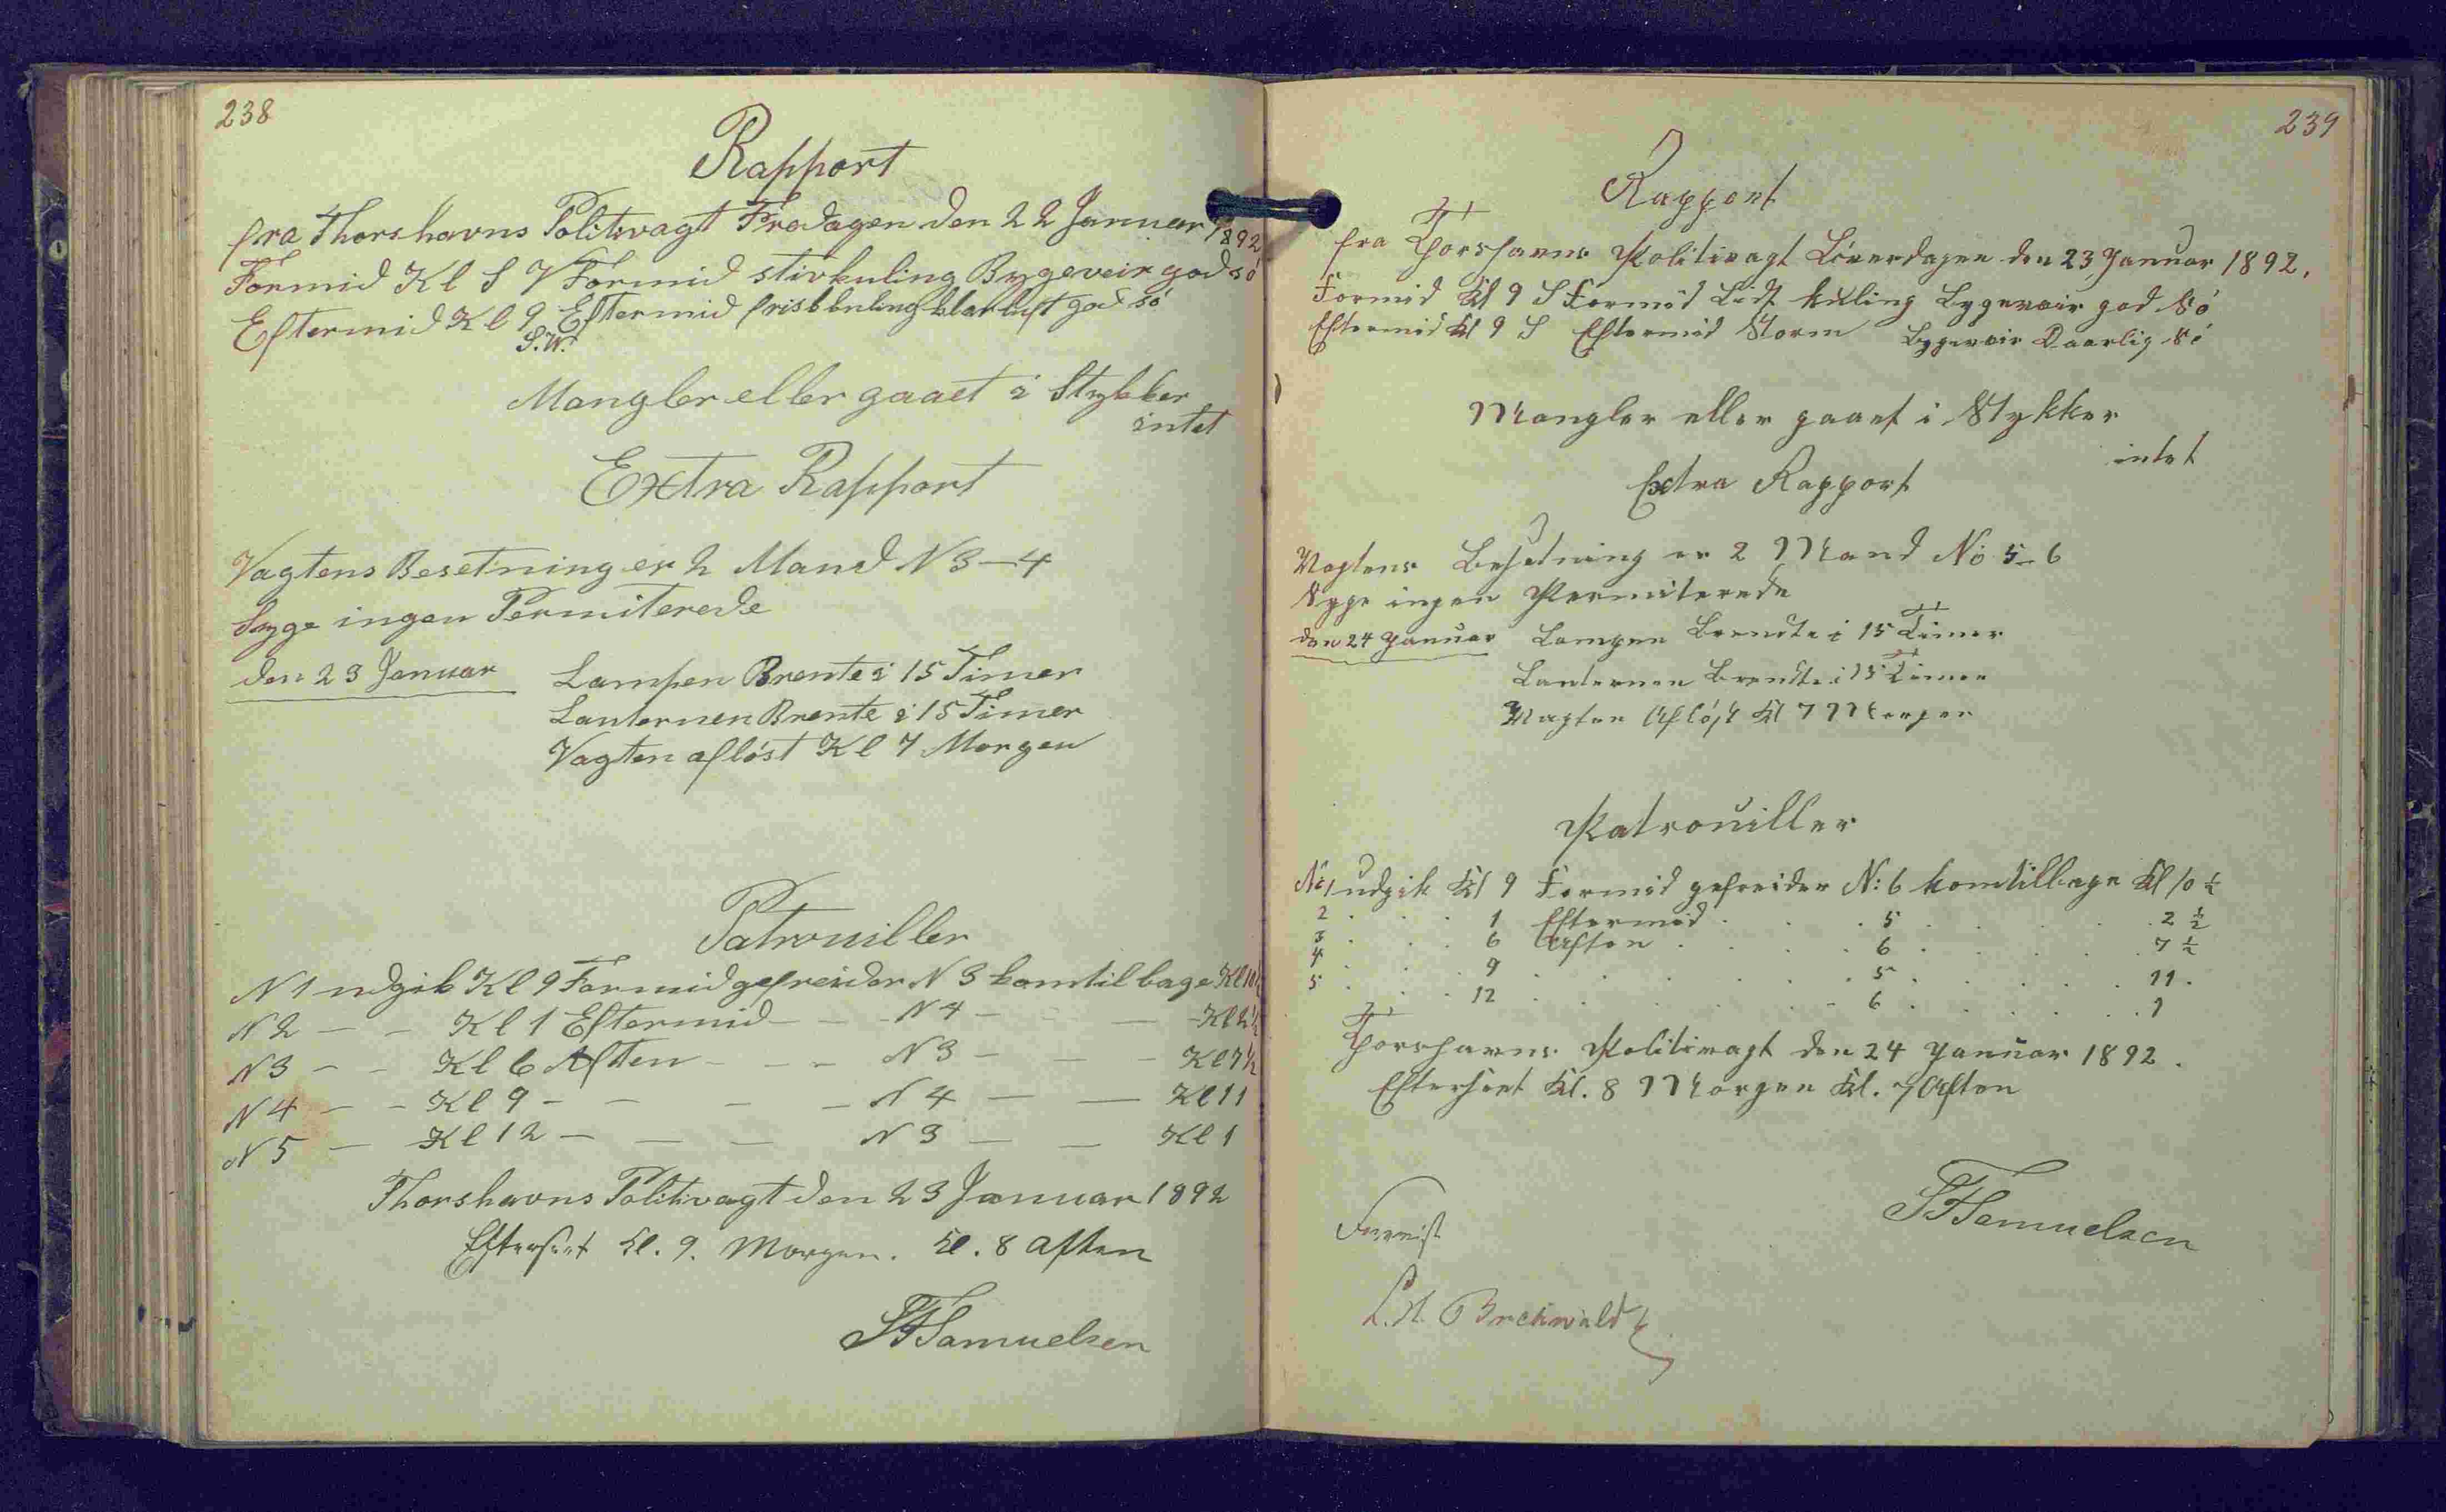 238
Rapport
fra Thorshavns Politivagt Fredagen den 22 Januar 1892
Formid Kl S V Formid stivkuling Bygeveir god só
Eftermid Kl 9 S.W. Eftermid friskkuling klarluft god só
Mangler eller gaaet i Stykker
intet
Extra Rapport
Vagtens Besetning er 2 Mand N 3-4
Syge ingen Permiterede
den 23 Januar Lampen Brente i 15 Timer
Lanternen Brente i 15 Timer
Vagten aflóst Kl 7 Morgen
Patrouiller
N 1 udgik Kl 9 Formid gefreider N 3 komtilbage Kl 10½
N 2 — — Kl 1 Eftermid — — N 4 — — — Kl 2½
N 3 — — Kl 6 Aften — — — N 3 — — — Kl 7½
N 4 — — Kl 9 — — — — N 4 — — Kl 11
N 5 — Kl 12 — — — N 3 — — Kl 1
Thorshavns Politivagt den 23 Januar 1892
Efterseet Kl. 9. Morgen. Kl. 8 Aften
SFSamuelsen
239
Rapport
fra Thorshavns Politivagt Löverdagen den 23 Januar 1892.
Formid Kl 9 S Formid Lidt kuling Bygevair god Só
Eftermid Kl 9 S Eftermid Storm Bygevair Daarlig Só
Mangler eller gaaet i Stykker
intet
Extra Rapport
Vagtens Besetning er 2 Mand No 5-6
Syge ingen Permiterede
den 24 Januar Lampen Brendte i 15 Timer
Lanternen Brendte i 15 Timer
Vagten Aflóst Kl 7 Morgen
Patrouiller
No 1 udgik Kl 9 Formid gefreider N: 6 komtilbage Kl 10 ½
2 . . . 1 Eftermid . . . 5 . . . . 2 ½
3 . . . 6 Aften . . . . 6 . . . . 7 ½
4 . . . 9 . . . . . . 5 . . . . 11.
5 . . . 12 . . . . . . 6 . . . . 1
Thorshavns Politivagt den 24 Januar 1892.
Efterseet Kl. 8 Morgen Kl. 7 Aften
SFSamuelsen